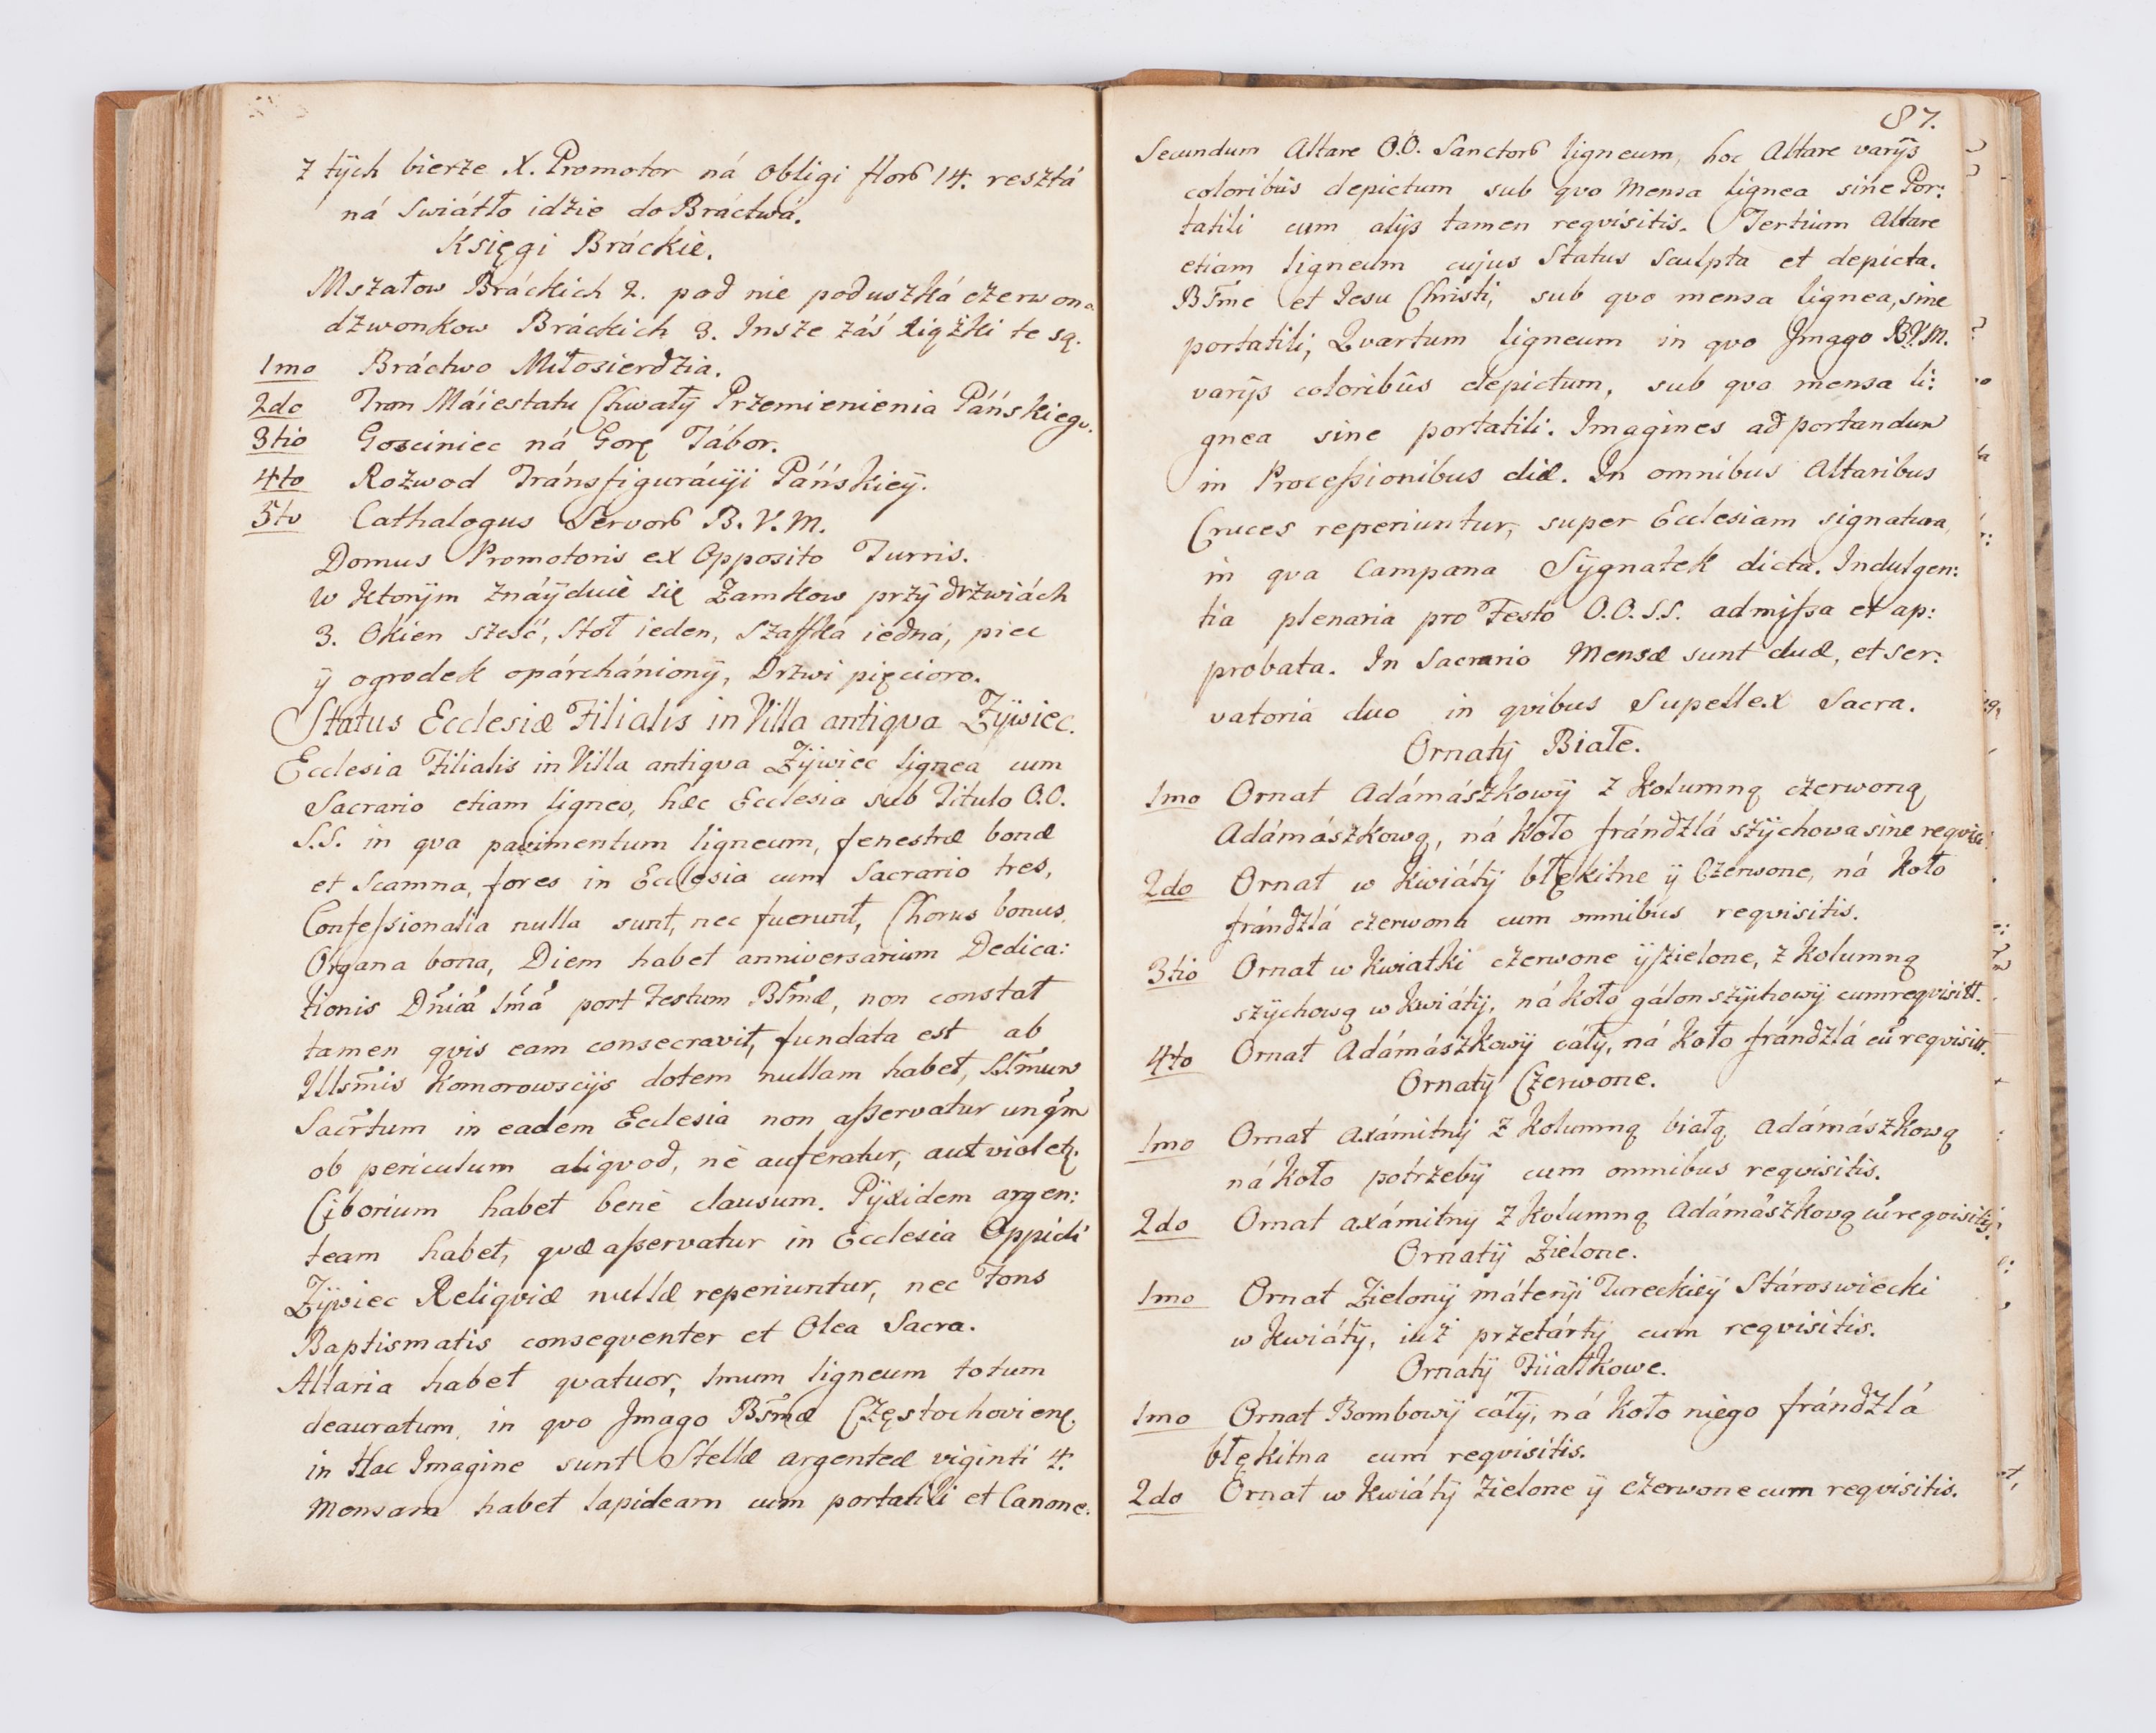 z tÿch bierze X. Promotor ná obligi flor 14. resztá
ná Swiátło idzie do Bráctwá.
Księgi Bráckie.
Mszałow Bráckich 2. pod nie poduszká czerwona
dzwonkow Bráckich 3. Insze záś xiążki te są.
1mo Bráctwo Miłosierdzia.
2do Tron Máiestatu Chwałÿ Przemienienia Páńskiego.
3tio Gosciniec ná Gorę Tábor.
4to Rozwod Tránsfiguráÿi Páńskieÿ.
5to Cathalogus Servor B. V. M.
Domus Promotoris ex Opposito Turris.
w ktorÿm znáÿduie się Zamkow przÿ drzwiách
3. Okien sześć, Stoł ieden, Szaffká iedná, piec
ÿ ogrodek opárchánionÿ, Drzwi pięcioro.
Status Ecclesiæ Filialis in Villa antiqva Zÿwiec.
Ecclesia Filialis in Villa antiqva Zÿwiec lignea cum
Sacrario etiam ligneo, hæc Ecclesia sub Titulo O.O.
S.S. in qva pavimentum ligneum, fenestræ bonæ
et Scamna, fores in Ecclesia cum Sacrario tres,
Confessionalia nulla sunt, nec fuerunt, Chorus bonus,
Organa bona, Diem habet anniversarium Dedica:
tionis Dnica 1ma post Festum BSmæ, non constat
tamen qvis eam consecravit, fundata est ab
Illsmis Komorowscijs dotem nullam habet, SSmum
Sacrtum in eadem Ecclesia non asservatur unqm
ob periculum aliqvod, nè auferatur, aut violet.
Ciborium habet benè clausum. Pÿxidem argen:
team habet, qvæ asservatur in Ecclesia Oppidi
Zÿwiec Reliqviæ nullæ reperiuntur, nec Fons
Baptismatis conseqventer et Olea Sacra.
Altaria habet qvatuor, 1mum ligneum totum
deauratum, in qvo Jmago BSmæ Częstochovienę
in Hac Imagine sunt Stellæ argenteæ viginti 4.
Mensam habet lapideam cum portatili et Canone.
87.
Secundum Altare O.O. Sanctor ligneum, hoc Altare varijs
coloribus depictum sub qvo Mensa lignea sine Por:
tatili cum alijs tamen reqvisitis. Tertium Altare
etiam ligneum cujus Status Sculpta et depicta.
BSmæ et Iesu Christi, sub qvo mensa lignea, sine
portatili, Qvartum ligneum in qvo Jmago B.V.M.
varijs coloribus depictum, sub qvo mensa li:
gnea sine portatili. Imagines ad portandum
in Processionibus duæ. In omnibus Altaribus
Cruces reperiuntur, super Ecclesiam signatura,
in qva Campana Sÿgnatek dicta. Indulgen:
tia plenaria pro Festo O.O.S.S. admissa et ap:
probata. In Sacrario Mensæ sunt duæ, et ser:
vatoria duo in qvibus Supellex Sacra.
Ornatÿ Białe.
1mo Ornat Adámászkowÿ z Kolumną czerwoną
Adámászkową, ná koło frándzlá szÿchowa sine reqvisi:
2do Ornat w kwiátÿ błękitne ÿ Czerwone, ná koło
frándzlá czerwona cum omnibus reqvisitis.
3tio Ornat w kwiatki czerwone ÿ zielone, z kolumną
szÿchową w kwiátÿ, ná koło gálon szÿchowÿ cum reqvisitt.
4to Ornat Adámászkowÿ cáłÿ, ná koło frándzlá cu reqvisitt.
Ornatÿ Czerwone.
1mo Ornat axámitnÿ z kolumną białą adámászkową
ná koło potrzebÿ cum omnibus reqvisitis.
2do Ornat axámitnÿ z kolumną adámászkową cu reqvisitis.
Ornatÿ Zielone.
1mo Ornat Zielonÿ máterÿi Tureckieÿ Stároswiecki
w kwiátÿ, iuż przetártÿ cum reqvisitis.
Ornatÿ Fiiałkowe.
1mo Ornat Bombowÿ cáłÿ, ná koło niego frándzlá
błękitna cum reqvisitis.
2do Ornat w kwiátÿ zielone ÿ czerwone cum reqvisitis.